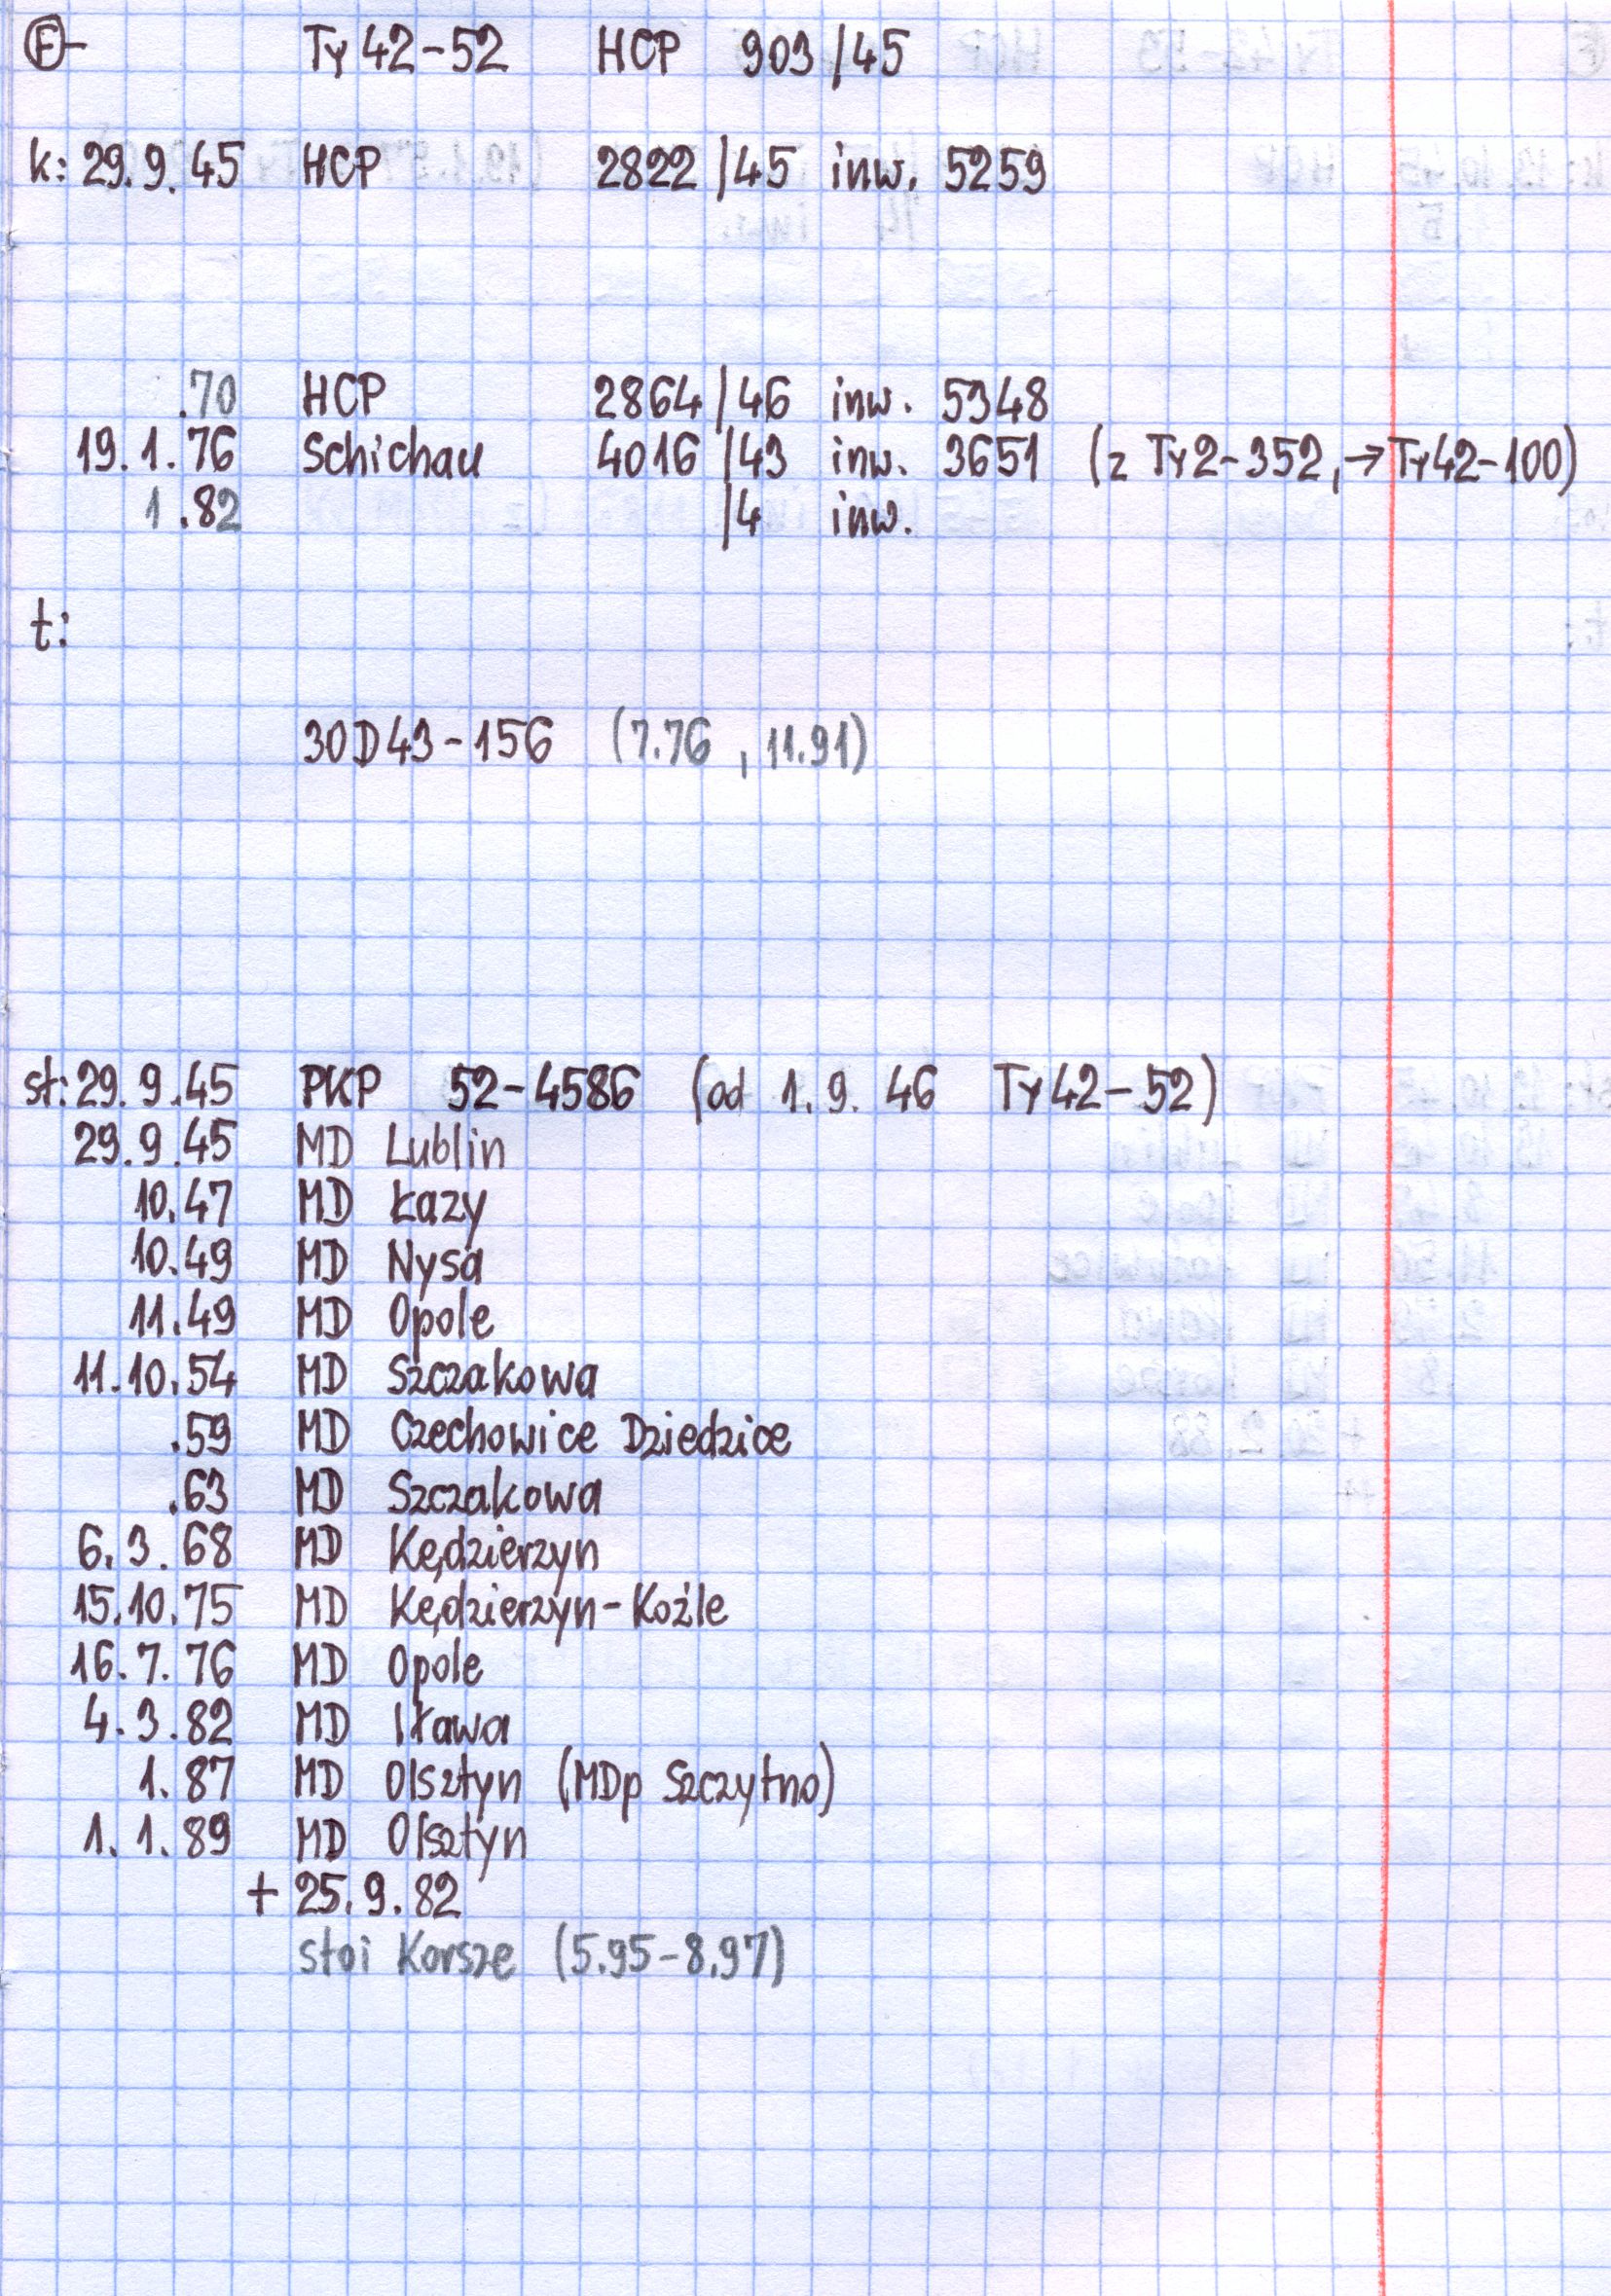 Ⓕ- Ty42-52 HCP 903/45
k: 29.9.45 HCP 2822/45 inw. 5259
.70 HCP 2864/46 inw. 5348
19.1.76 Schichau 4016/43 inw. 3651 (z Ty2-352, → Ty42-100)
1.82 /4 inw.
t:
30D43-156 (7.76, 11.91)
st: 29.9.45 PKP 52-4586 (od 1.9.46 Ty42-52)
29.9.45 MD Lublin
10.47 MD Łazy
10.49 MD Nysa
11.49 MD Opole
11.10.54 MD Szczakowa
.59 MD Czechowice Dziedzice
.63 MD Szczakowa
6.3.68 MD Kędzierzyn
15.10.75 MD Kędzierzyn-Koźle
16.7.76 MD Opole
4.3.82 MD Iława
1.87 MD Olsztyn (MDp Szczytno)
1.1.89 MD Olsztyn
+ 25.9.82
stoi Korsze (5.95-8.97)